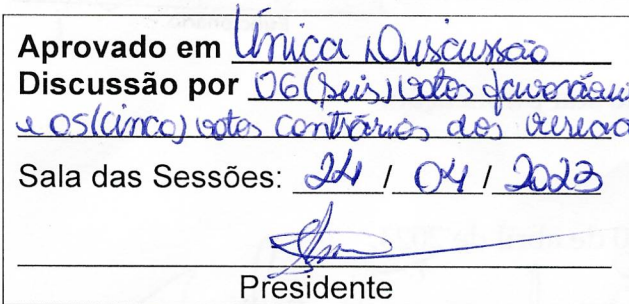 Aprovado em Única Discussão
Discussão por 06 (seis) votos favoráveis
e 05 (cinco) votos contrários dos
Sala das Sessões: 24 / 04 / 2023
Presidente